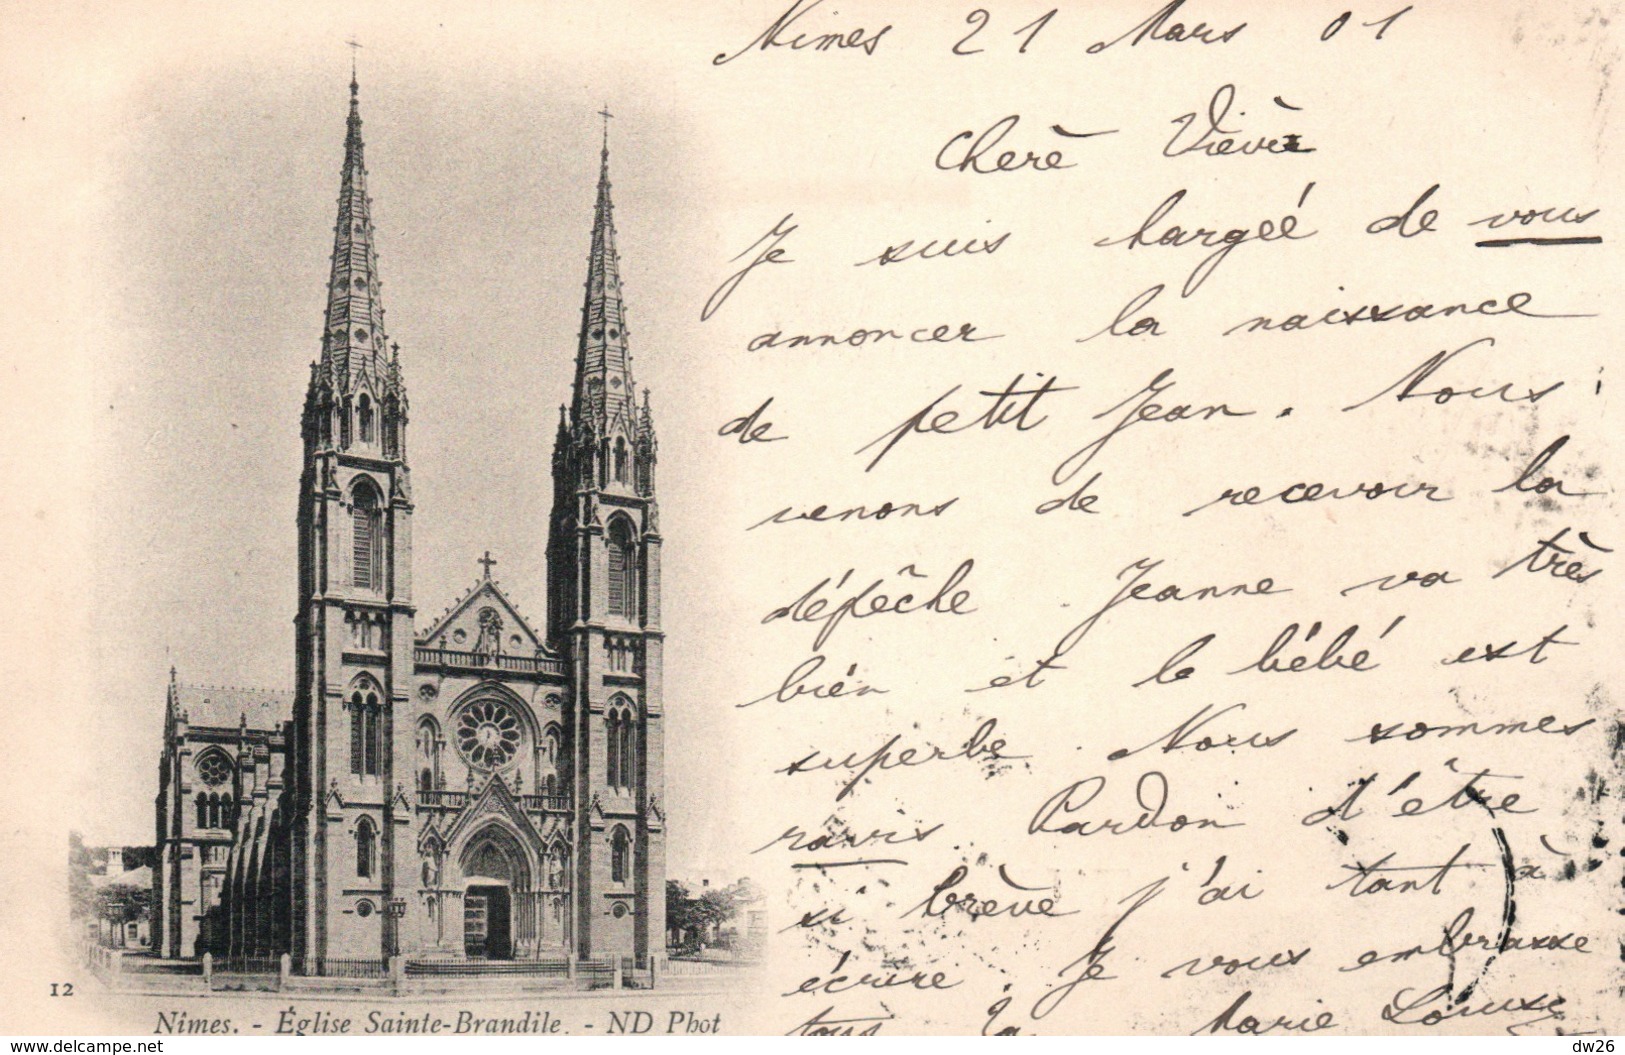 Nimes 21 Mars 01
Chère Viève
Je suis chargéé de vous
annoncer la naissance
de petit Jean. Nous
venons de recevoir la
dépêche. Jeanne va très
bien et le bébé est
superbe. Nous sommes
ravis. Pardon d'être
si brève j'ai tant à
écrire. Je vous embrasse
tous Marie Louise
12
Nîmes. - Église Sainte-Brandile. - ND Phot
www.delcampe.net
dw26